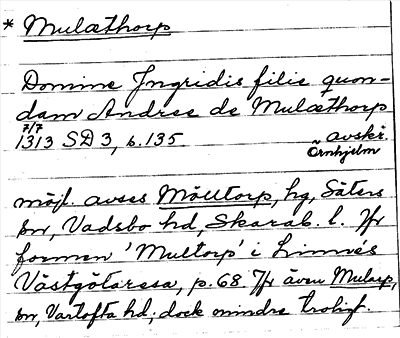 * Mulæthorp
Domine Jngridis filie quon-
dam Andree de Mulæthorp
7/7
1313 SD 3, s. 135 avskr.
Örnhjelm
möjl. avses Mölltorp, hg, Säters
sn, Vadsbo hd, Skarab. l. Jfr
formen 'Multorp' i Linnés
Västgötaresa, p. 68. Jfr även Mularp,
sn, Vartofta hd; dock mindre troligt.